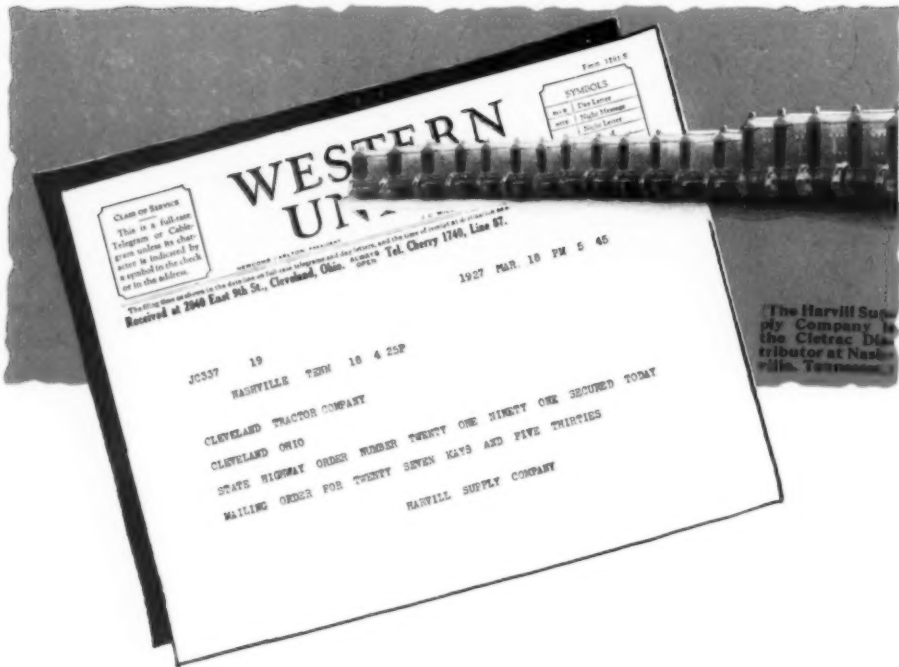 Form 1201 S
CLASS OF SERVICE
This is a full-rate
Telegram or Cable-
gram unless its char-
acter is indicated by
a symbol in the check
or in the address.
WESTERN
UN
SYMBOLS
Day Letter
Night Message
Night Letter
NEWCOMB CARLTON, PRESIDENT
The filing time as shown in the date line on full-rate telegrams and day letters, and the time of receipt at destination as
Received at 2040 East 9th St., Cleveland, Ohio. ALWAYS OPEN Tel. Cherry 1740, Line 87.
1927 MAR. 18 PM 5 45
JC337 19
NASHVILLE TENN 18 4 25P
CLEVELAND TRACTOR COMPANY
CLEVELAND OHIO
STATE HIGHWAY ORDER NUMBER TWENTY ONE NINETY ONE SECURED TODAY
MAILING ORDER FOR TWENTY SEVEN KAYS AND FIVE THIRTIES
HARVILL SUPPLY COMPANY
The Harvill Sup-
ply Company is
the Cletrac Dis-
tributor at Nash-
ville, Tennessee